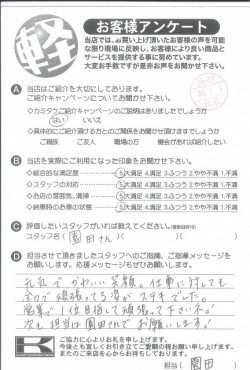 軽
お客様アンケート
当店では、お買い上げ頂いたお客様の声を可能
な限り現場に反映し、お客様により良い商品と
サービスを提供する事に努めています。
大変お手数ですが是非お声をお聞かせ下さい。
A 当店はご紹介を大切にしております。
ご紹介キャンペーンについてお聞かせ下さい。
◇カミタウンご紹介キャンペーンのご説明はありましたでしょうか
はい いいえ
◇具体的にご紹介頂ける方とのご関係をお聞かせ頂けますでしょうか
ご親族 ご友人 職場の方 機会があれば紹介したい
B 当店を実際にご利用になった印象をお聞かせ下さい。
◇総合的な満足度 5.大満足 4.満足 3.ふつう 2.やや不満 1.不満
◇スタッフの対応 5.大満足 4.満足 3.ふつう 2.やや不満 1.不満
◇お店の雰囲気、清掃 5.大満足 4.満足 3.ふつう 2.やや不満 1.不満
◇納車時のお車の状態 5.大満足 4.満足 3.ふつう 2.やや不満 1.不満
C 評価したいスタッフがいれば教えてください。
スタッフ名( 園田さん )( )( )
D 担当させて頂きましたスタッフへのご指摘、ご指導メッセージを
お願いします。応援メッセージもぜひお願いします。
元気でかわいい笑顔。仕事に対しても
全力で頑張ってる姿がステキでした。
営業で1位目指して頑張って下さい。
次も担当は園田さんでお願いします。
K
ご協力に心よりお礼を申し上げます。
今後とも宜しくお引き立てご愛顧の程お願い申し上げます。
またのご来店を心からお待ちしております。
担当( 園田 )